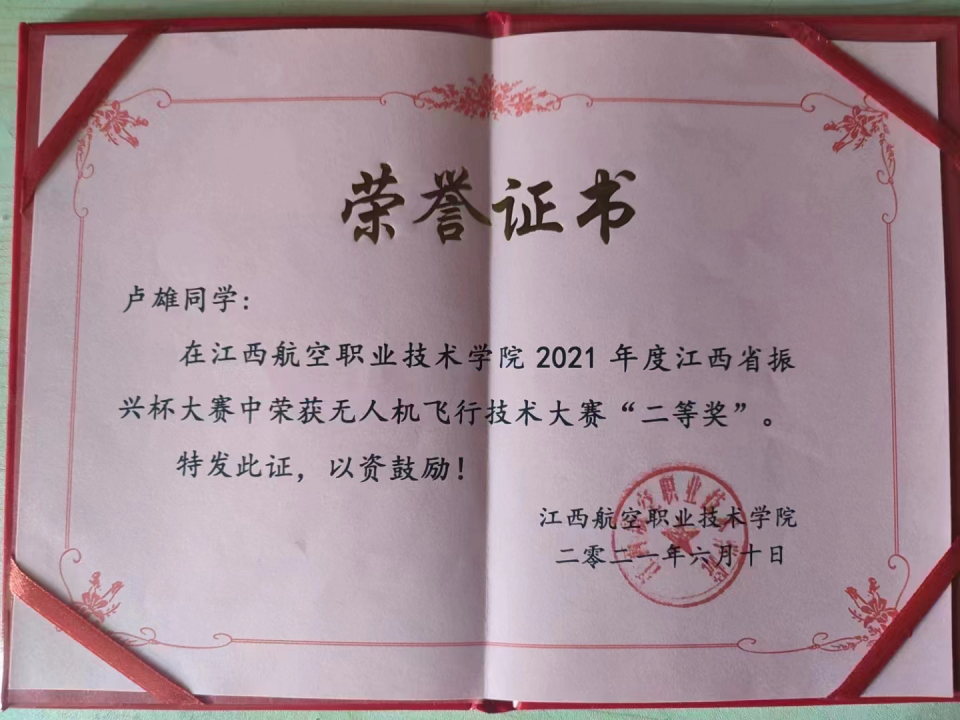 荣誉证书
卢雄同学：
在江西航空职业技术学院 2021 年度江西省振
兴杯大赛中荣获无人机飞行技术大赛“二等奖”。
特发此证，以资鼓励！
江西航空职业技术学院
二零二一年六月十日
江西航空职业技术学院